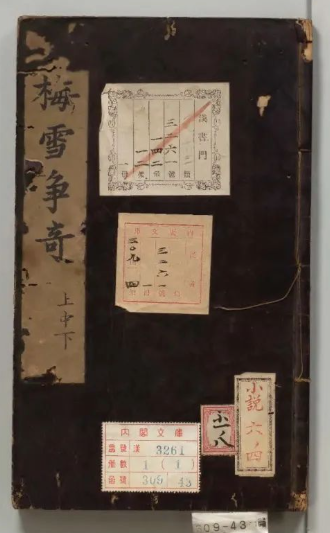 梅雪争奇
上中下
漢書門
三二六一
一四二
一二
一
三二六一
三〇九
四
一
小説六ノ四
十一ノ八
内閣文庫
番號 漢 3261
冊數 1 ( 1 )
函號 309 43
309-43